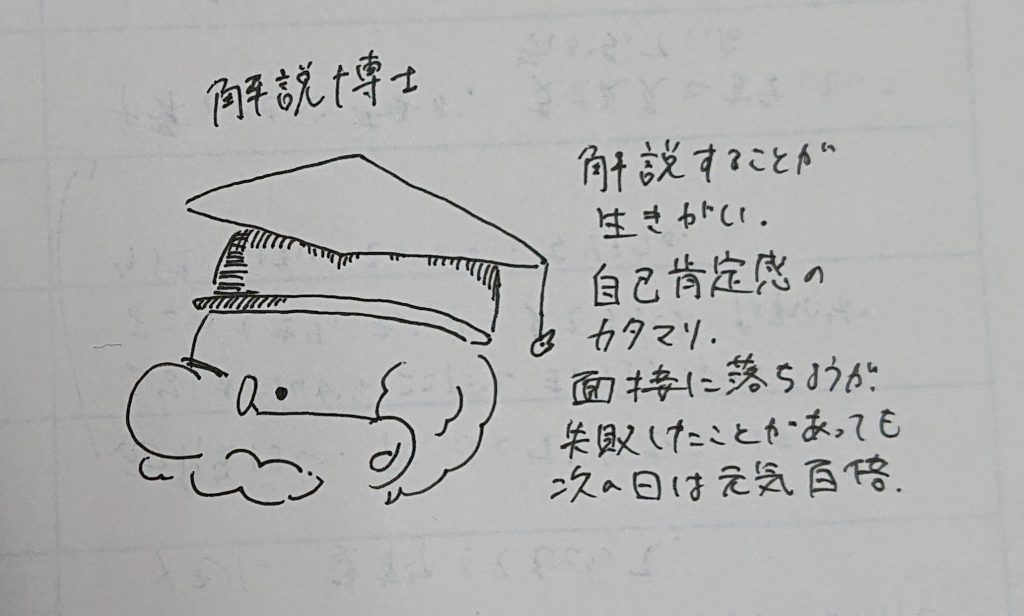 解説博士
解説することが
生きがい.
自己肯定感の
カタマリ.
面接に落ちようが.
失敗したことがあっても
次の日は元気百倍.